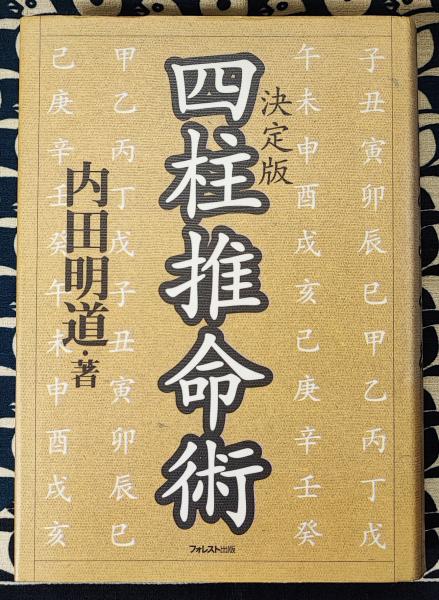 子丑寅卯辰巳甲乙丙丁戊
午未申酉戌亥己庚辛壬癸
決定版
四柱推命術
甲乙丙丁戊子丑寅卯辰巳
内田明道・著
己庚辛壬癸午未申酉戌亥
フォレスト出版